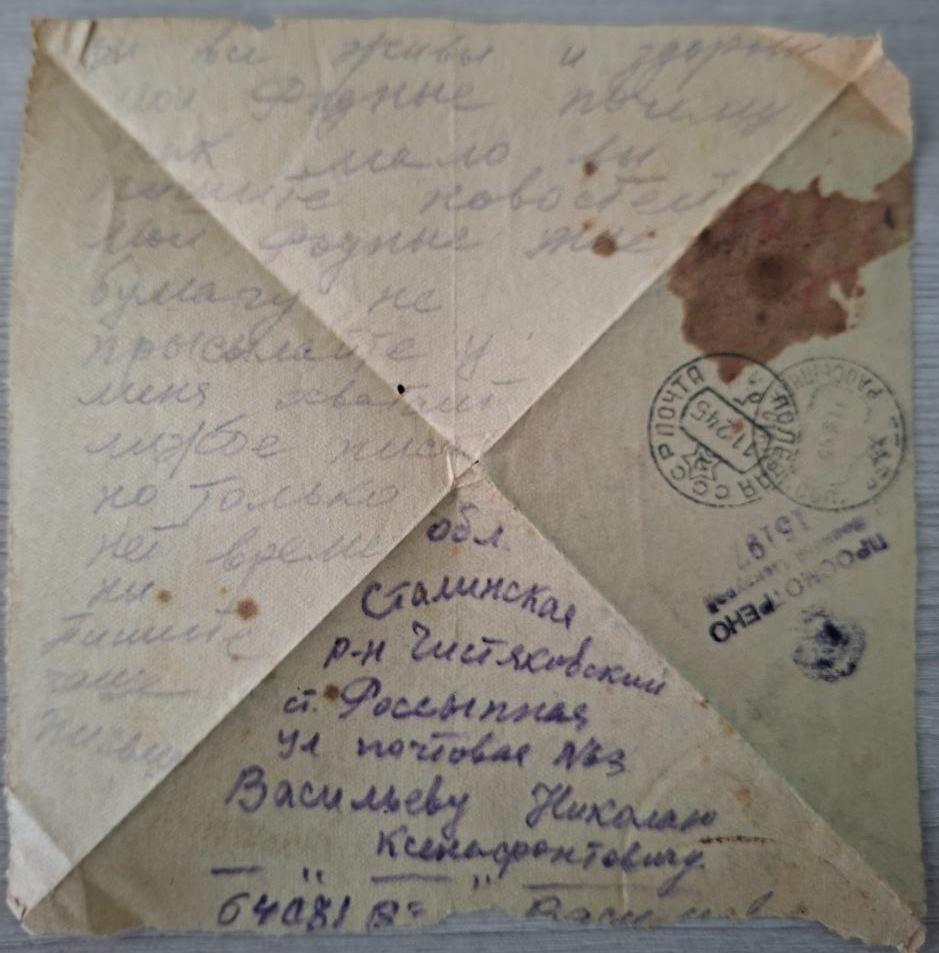 вы все живы и здоровы
мои Родные почему
так мало вы
пишите новостей
мои Родные
бумагу не
присылайте у
меня хватаит
писа
но только
нет време
ни
Пишите
чаще
письма
обл.
Сталинская
р-н Чистяковский
ст. Россыпная
ул почтовая №63
Васильеву Николаю
Ксенофонтовичу
64081
СССР ПОЧТА
ПОЛЕВАЯ
11 2 45
ПРОСМОТРЕНО
Военной Цензурой
15197